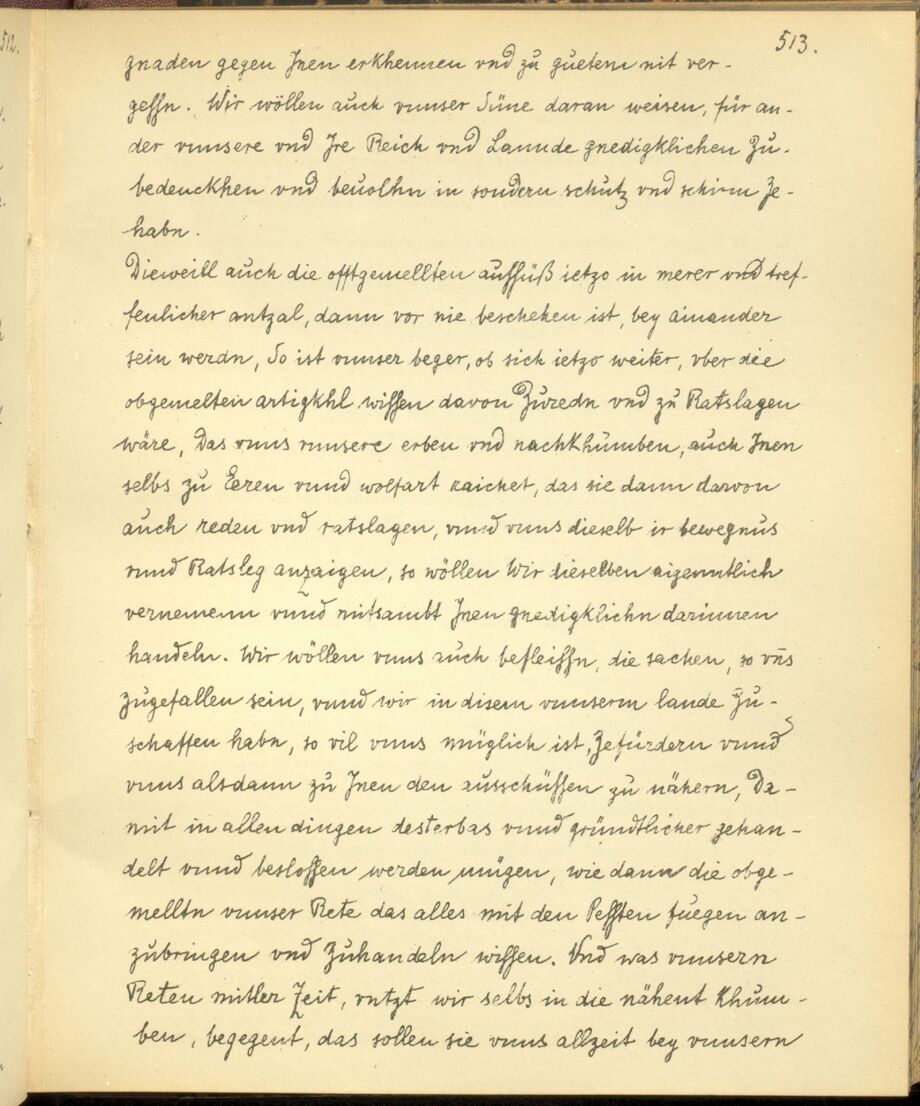 512.
513.
gnaden gegen Jnen erkhennen vnd zu guetem nit ver-
gessn. Wir wöllen auch vnnser Süne daran weisen, für an-
der vnnsere vnd Jre Reich vnd Lannde gnedigklichen Zu-
bedenckhen vnd beuolhn in sondern schutz vnd schirm Ze-
habn.
Dieweill auch die offtgemellten aussüß ietzo in merer vnd tref-
fenlicher antzal, dann vor nie bescheken ist, bey ainander
sein werdn, So ist vnnser beger, ob sich ietzo weiter, vber die
obgemelten artigkhl wissen davon Zuredn vnd zu Ratslagen
wäre, Das vnns vnnsere erben vnd nachkhumben, auch Jnen
selbs zu Eeren vnnd wolfart raichet, das sie dann darvon
auch reden vnd ratslagen, vnnd vnns dieselb ir bewegnus
vnnd Ratsleg anzaigen, so wöllen Wir dieselben aigenntlich
vernemenn vnnd mitsambt Jnen gnedigklichn darinnen
handeln. Wir wöllen vnns auch befleissn, die sachen, so vn̄s
zugefallen sein, vnnd wir in disem vnnserm lande Zu-
schaffen habn, so vil vnns müglich ist, Zefürdern vnnd
vnns alsdann zu Jnen den ausschüssen zu nähern, Da-
mit in allen dingen desterbas vnnd gründtlicher gehan-
delt vnnd beslossen werden mügen, wie dann die obge-
melltn vnnser Rete das alles mit den Pessten fuegen an-
zubringen vnd Zuhandeln wissen. Vnd was vnnsern
Reten mitler Zeit, vntzt wir selbs in die nähent khum-
ben, begegent, das sollen sie vnns allzeit bey vnnsern